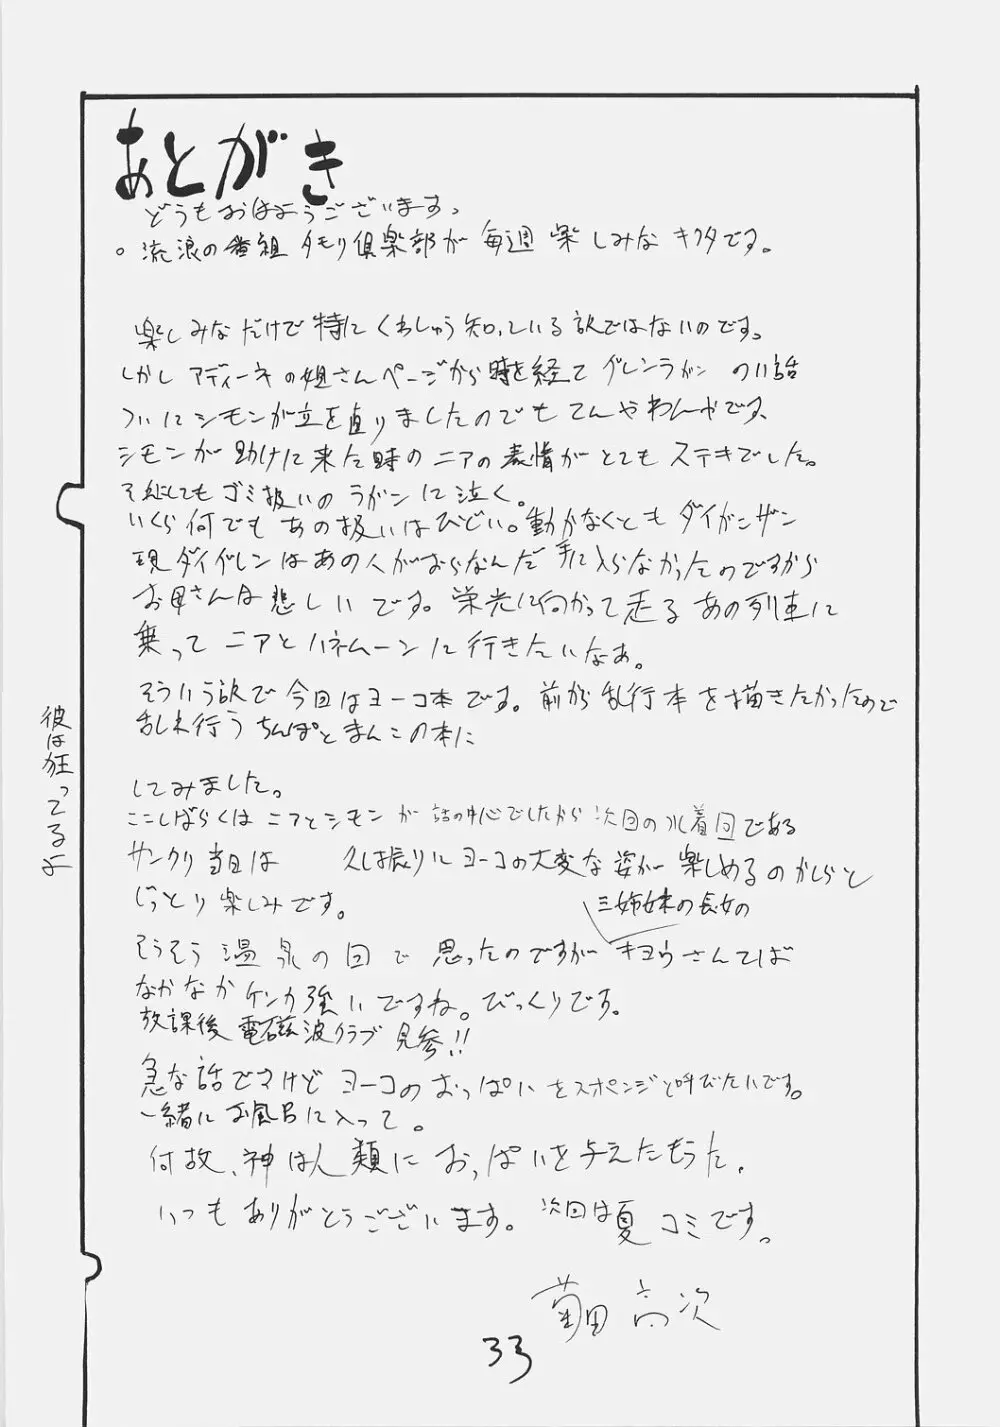 あとがき
どうもおはようございます。
。流浪の番組 タモリ倶楽部が毎週 楽しみな キクタです。
楽しみなだけで特にくわしゅう知っている訳ではないのです。
しかし アディーネの姐さんページから時を経て グレンラガン の11話
ついにシモンが立ち直りましたのでもてんやわんやです、
シモンが助けに来た時のニアの表情がとてもステキでした。
それにしてもゴミ扱いの ラガンに泣く。
いくら何でも あの扱いはひどい。動かなくとも ダイガンザン
現ダイグレンはあの人がおらなんだ 手に入らなかったのですから
お母さんは 悲しいです。栄光に向かって走る あの列車に
乗って ニアとハネムーンに行きたいなぁ。
そういう訳で今回はヨーコ本です。前から乱行本を描きたかったので
乱れ行う ちんぽとまんこの本に
してみました。
ここしばらくは ニアとシモンが 話の中心でしたから 次回の水着回である
サンクリ当日は 久し振りにヨーコの大変な姿が 楽しめるのかしらと
じっとり楽しみです。
三姉妹の長女の
そうそう 温泉の回で 思ったのですが キヨウさんてば
なかなかケンカ強いですね。びっくりです。
放課後 電磁波クラブ 見参!!
急な話ですけど ヨーコのおっぱいをスポンジと呼びたいです。
一緒にお風呂に入って。
何故、神は人類に おっぱいを与えたもうた。
いつもありがとうございます。次回は夏コミです。
彼は狂ってるよ
菊田 高次
33